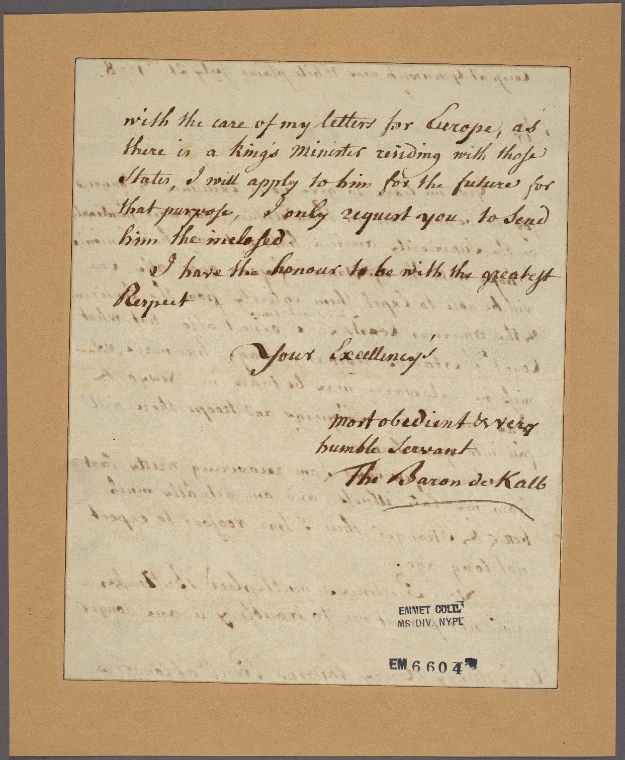 with the care of my letters for Europe, as
there is a king's Minister residing with those
States, I will apply to him for the future for
that purpose, I only request you, to Send
him the inclosed
I have the honour to be with the greatest
Respect
Your Excellency's
most obedient & very
humble Servant
The Baron de Kalb
EMMET COLL.
MS DIV. NYPL
EM 6604